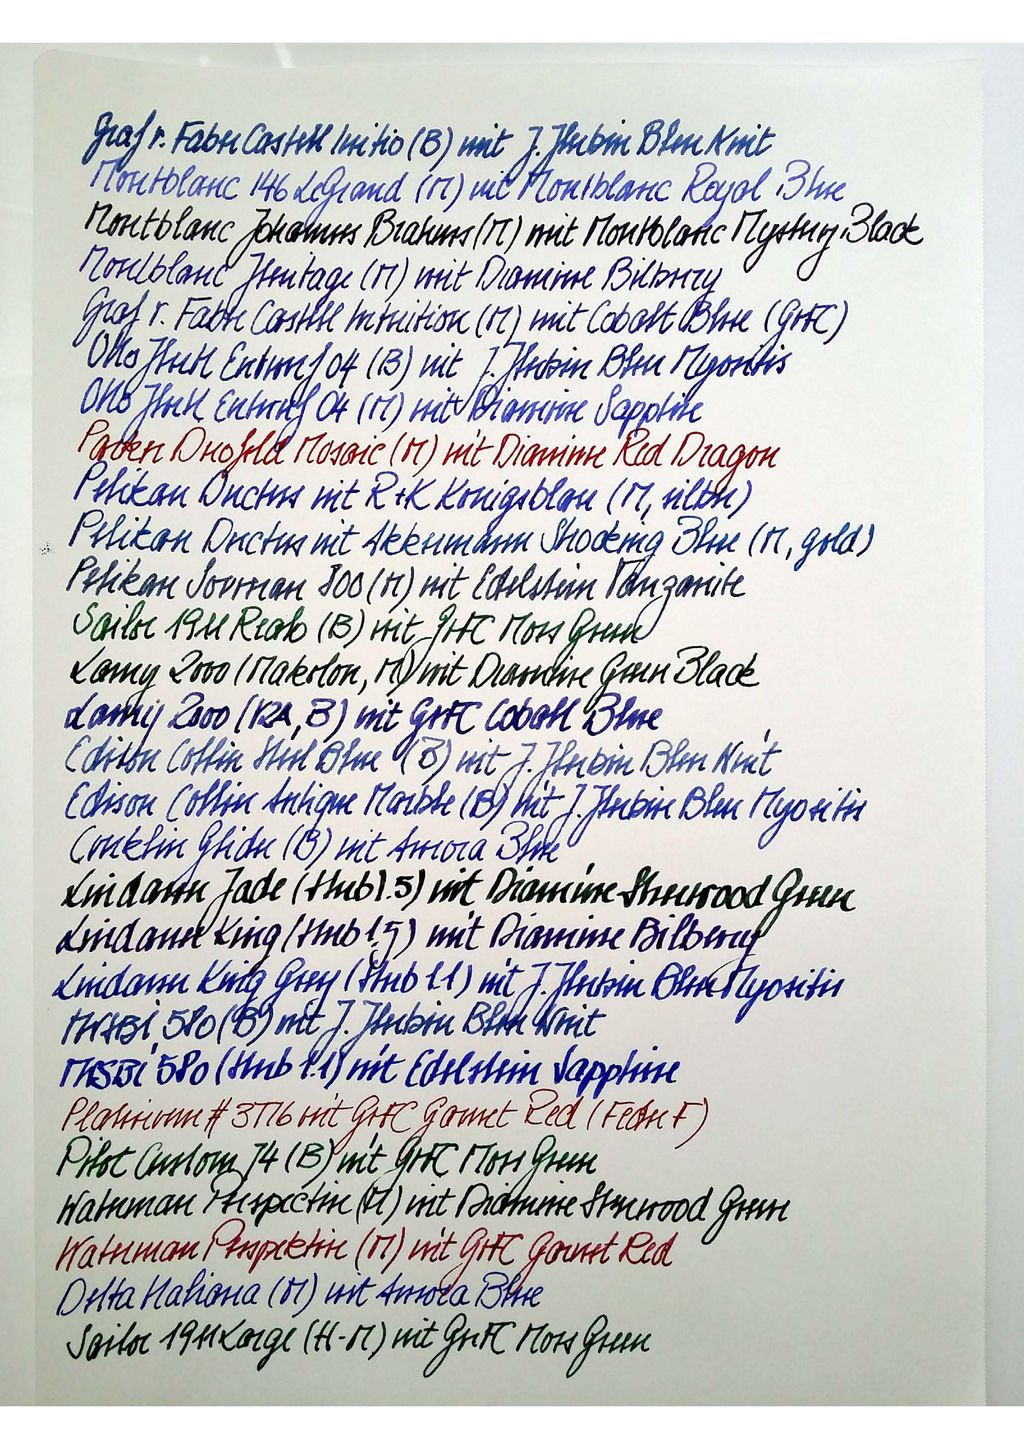 Graf v. Faber Castell Initio (B) mit J. Herbin Bleu Nuit
Montblanc 146 LeGrand (M) mit Montblanc Royal Blue
Montblanc Johannes Brahms (M) mit Montblanc Mystery Black
Montblanc Heritage (M) mit Diamine Bilberry
Graf v. Faber Castell Intuition (M) mit Cobalt Blue (GvFC)
Otto Hutt Entwurf 04 (B) mit J. Herbin Bleu Myosotis
Otto Hutt Entwurf 04 (M) mit Diamine Sapphire
Parker Duofold Mosaic (M) mit Diamine Red Dragon
Pelikan Ductus mit R+K Königsblau (M, silber)
Pelikan Ductus mit Akkermann Shocking Blue (M, gold)
Pelikan Souverän 800 (M) mit Edelstein Tanzanite
Sailor 1911 Realo (B) mit GvFC Moss Green
Lamy 2000 (Makrolon, M) mit Diamine Green Black
Lamy 2000 (B) mit GvFC Cobalt Blue
Edison Collier Steel Blue (B) mit J. Herbin Bleu Nuit
Edison Collier Antique Marble (B) mit J. Herbin Bleu Myosotis
Conklin Glider (B) mit Aurora Blue
Lindauer Jade (Stub 1.5) mit Diamine Sherwood Green
Lindauer King (Stub 1.5) mit Diamine Bilberry
Lindauer King Grey (Stub 1.1) mit J. Herbin Bleu Myosotis
TWSBI 580 (B) mit J. Herbin Bleu Nuit
TWSBI 580 (Stub 1.1) mit Edelstein Sapphire
Platinum # 3776 mit GvFC Garnet Red (Feder F)
Pilot Custom 74 (B) mit GvFC Moss Green
Waterman Perspective (M) mit Diamine Sherwood Green
Waterman Perspektive (M) mit GvFC Garnet Red
Delta Italiana (M) mit Aurora Blue
Sailor 1911 Large (H-M) mit GvFC Moss Green